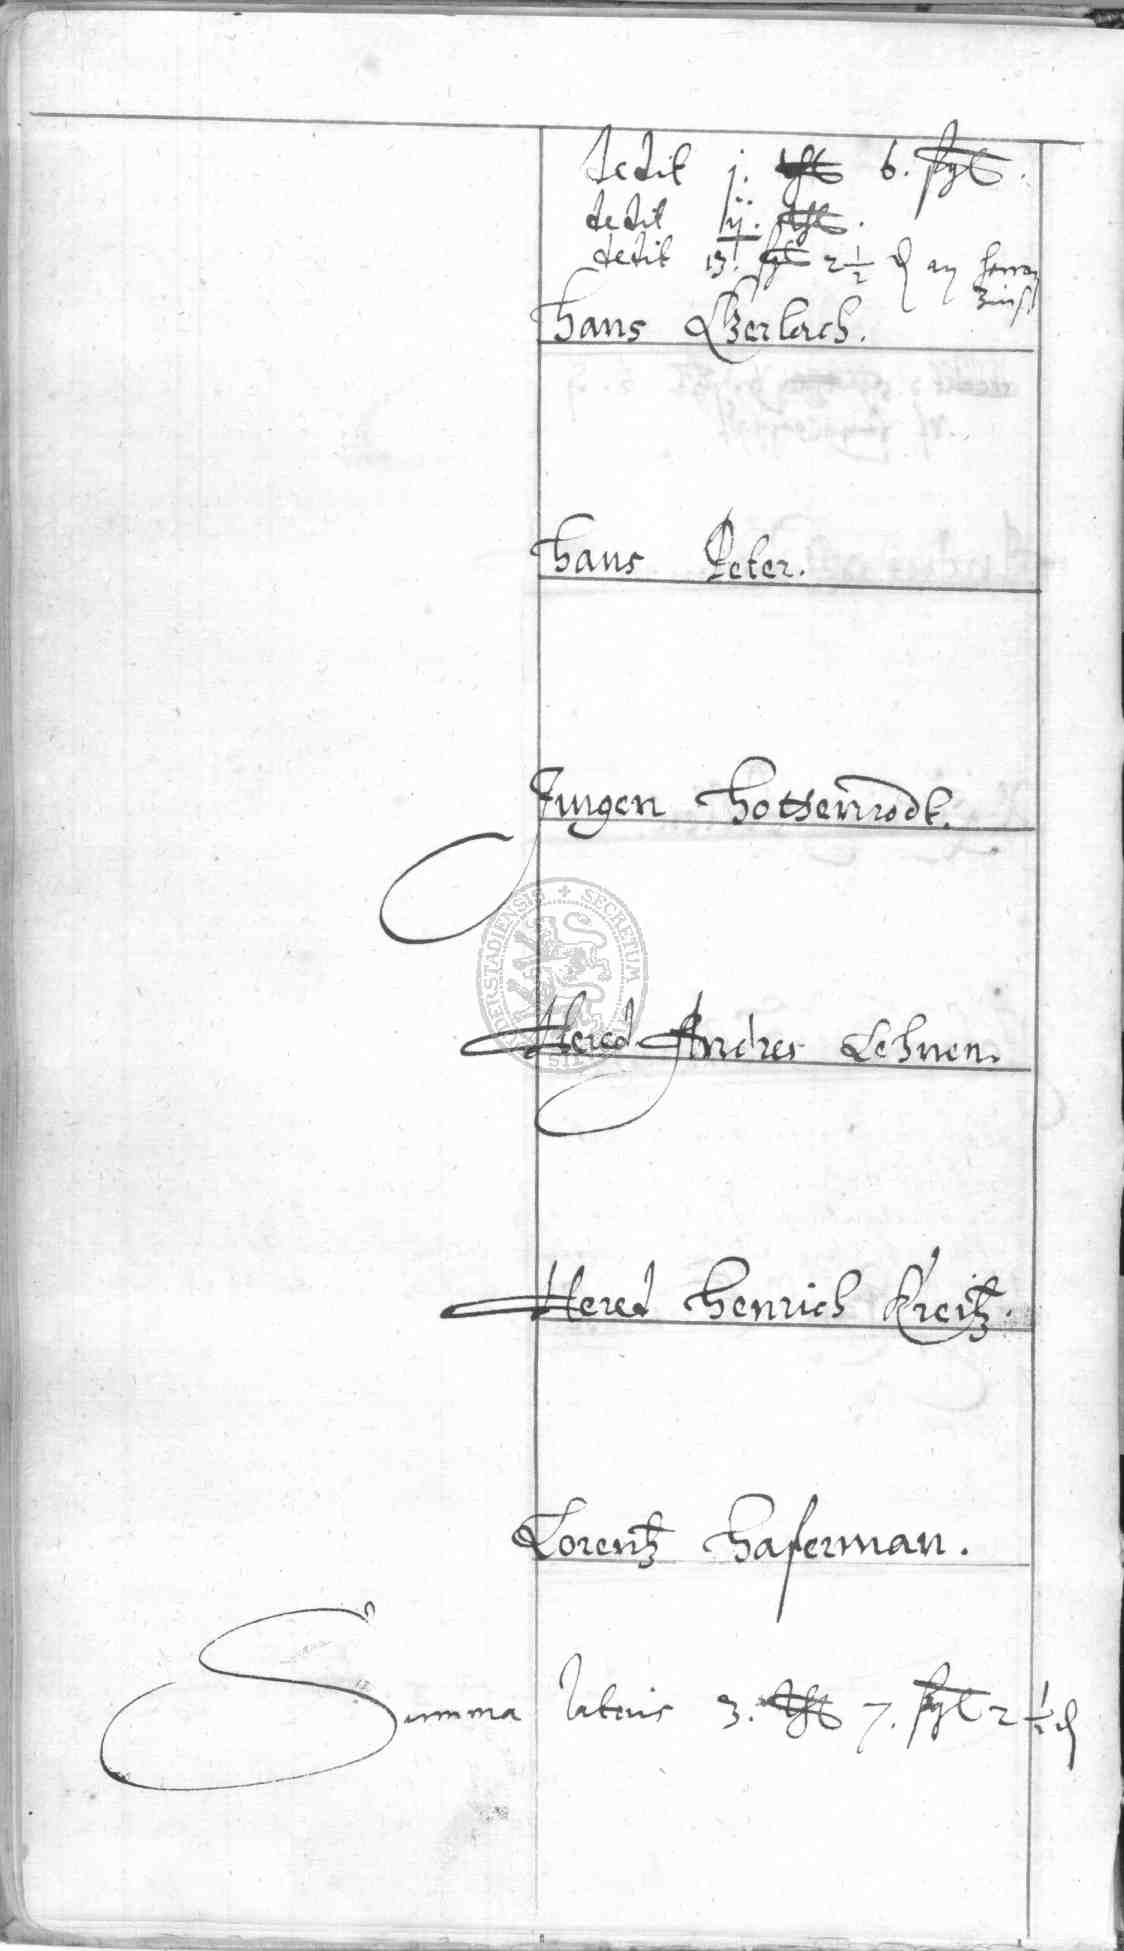 dedit j. thl 6. ßgl.
dedit ij. thl.
dedit 13. ßgl 2 1/2 ₰ an herrn
Zinß
Hans Gerlach.
Hans Peter.
Jurgen Hottenrodt.
Hered Andres Lehnen.
Hered Henrich Kreitz.
Lorentz Haferman.
Summa lateris 3. thl 7. ßgl 2 1/2 ₰
SECRETUM